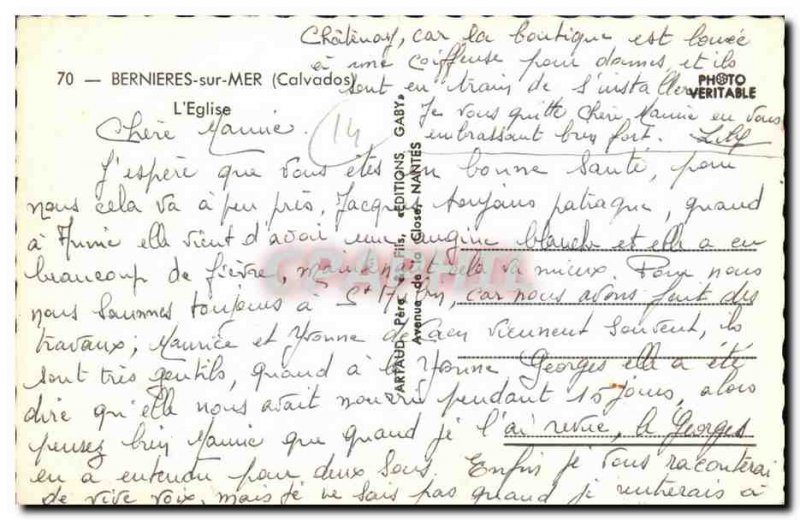 70 — BERNIERES-sur-MER (Calvados)
L'Eglise
PHOTO
VERITABLE
ARTAUD Père et Fils, «EDITIONS GABY»
Avenue de la Close, NANTES
14
Chère Mamie.
J'espère que vous êtes en bonne santé, pour
nous cela va à peu près, Jacques toujours patraque, quand
à Annie elle vient d'avoir une angine blanche et elle a eu
beaucoup de fièvre, maintenant cela va mieux. Pour nous
nous sommes toujours à car nous avons fait des
travaux; Maurice et Yvonne de Caen viennent souvent, ils
sont très gentils, quand à la Yvonne Georges elle a été
dire qu'elle nous avait nourri pendant 15 jours, alors
pensez bien Mamie que quand je l'ai revue, la Georges
en a entendu pour deux sous. Enfin je vous raconterai
de vive voix, mais je ne sais pas quand je rentrerais à
Châtenay, car la boutique est louée
à une coiffeuse pour dames, et ils
sont en train de s'installer
Je vous quitte Chère Mamie en vous
embrassant bien fort. Lily